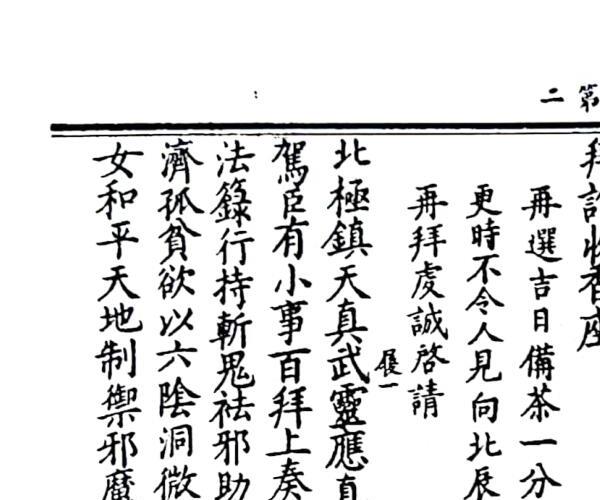 第二
拜許收香座
再選吉日備茶一分
更時不令人見向北辰
再拜虔誠啓請
展一
北極鎮天真武靈應真
駕臣有小事百拜上奏
法籙行持斬鬼祛邪助
濟孤貧欲以六陰洞微
女和平天地制禦邪魔